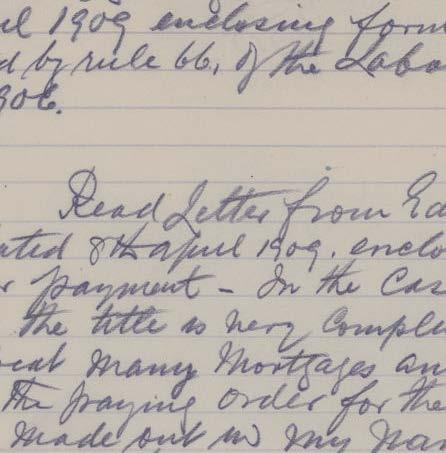 il 1909 enclosing form
d by rule 66, of the Labo
906.
Read Letter from Ed
ated 8th april 1909. enclo
r payment - In the Cas
the title is very Compli
reat many Mortgages an
The paying order for the
made out in my nam